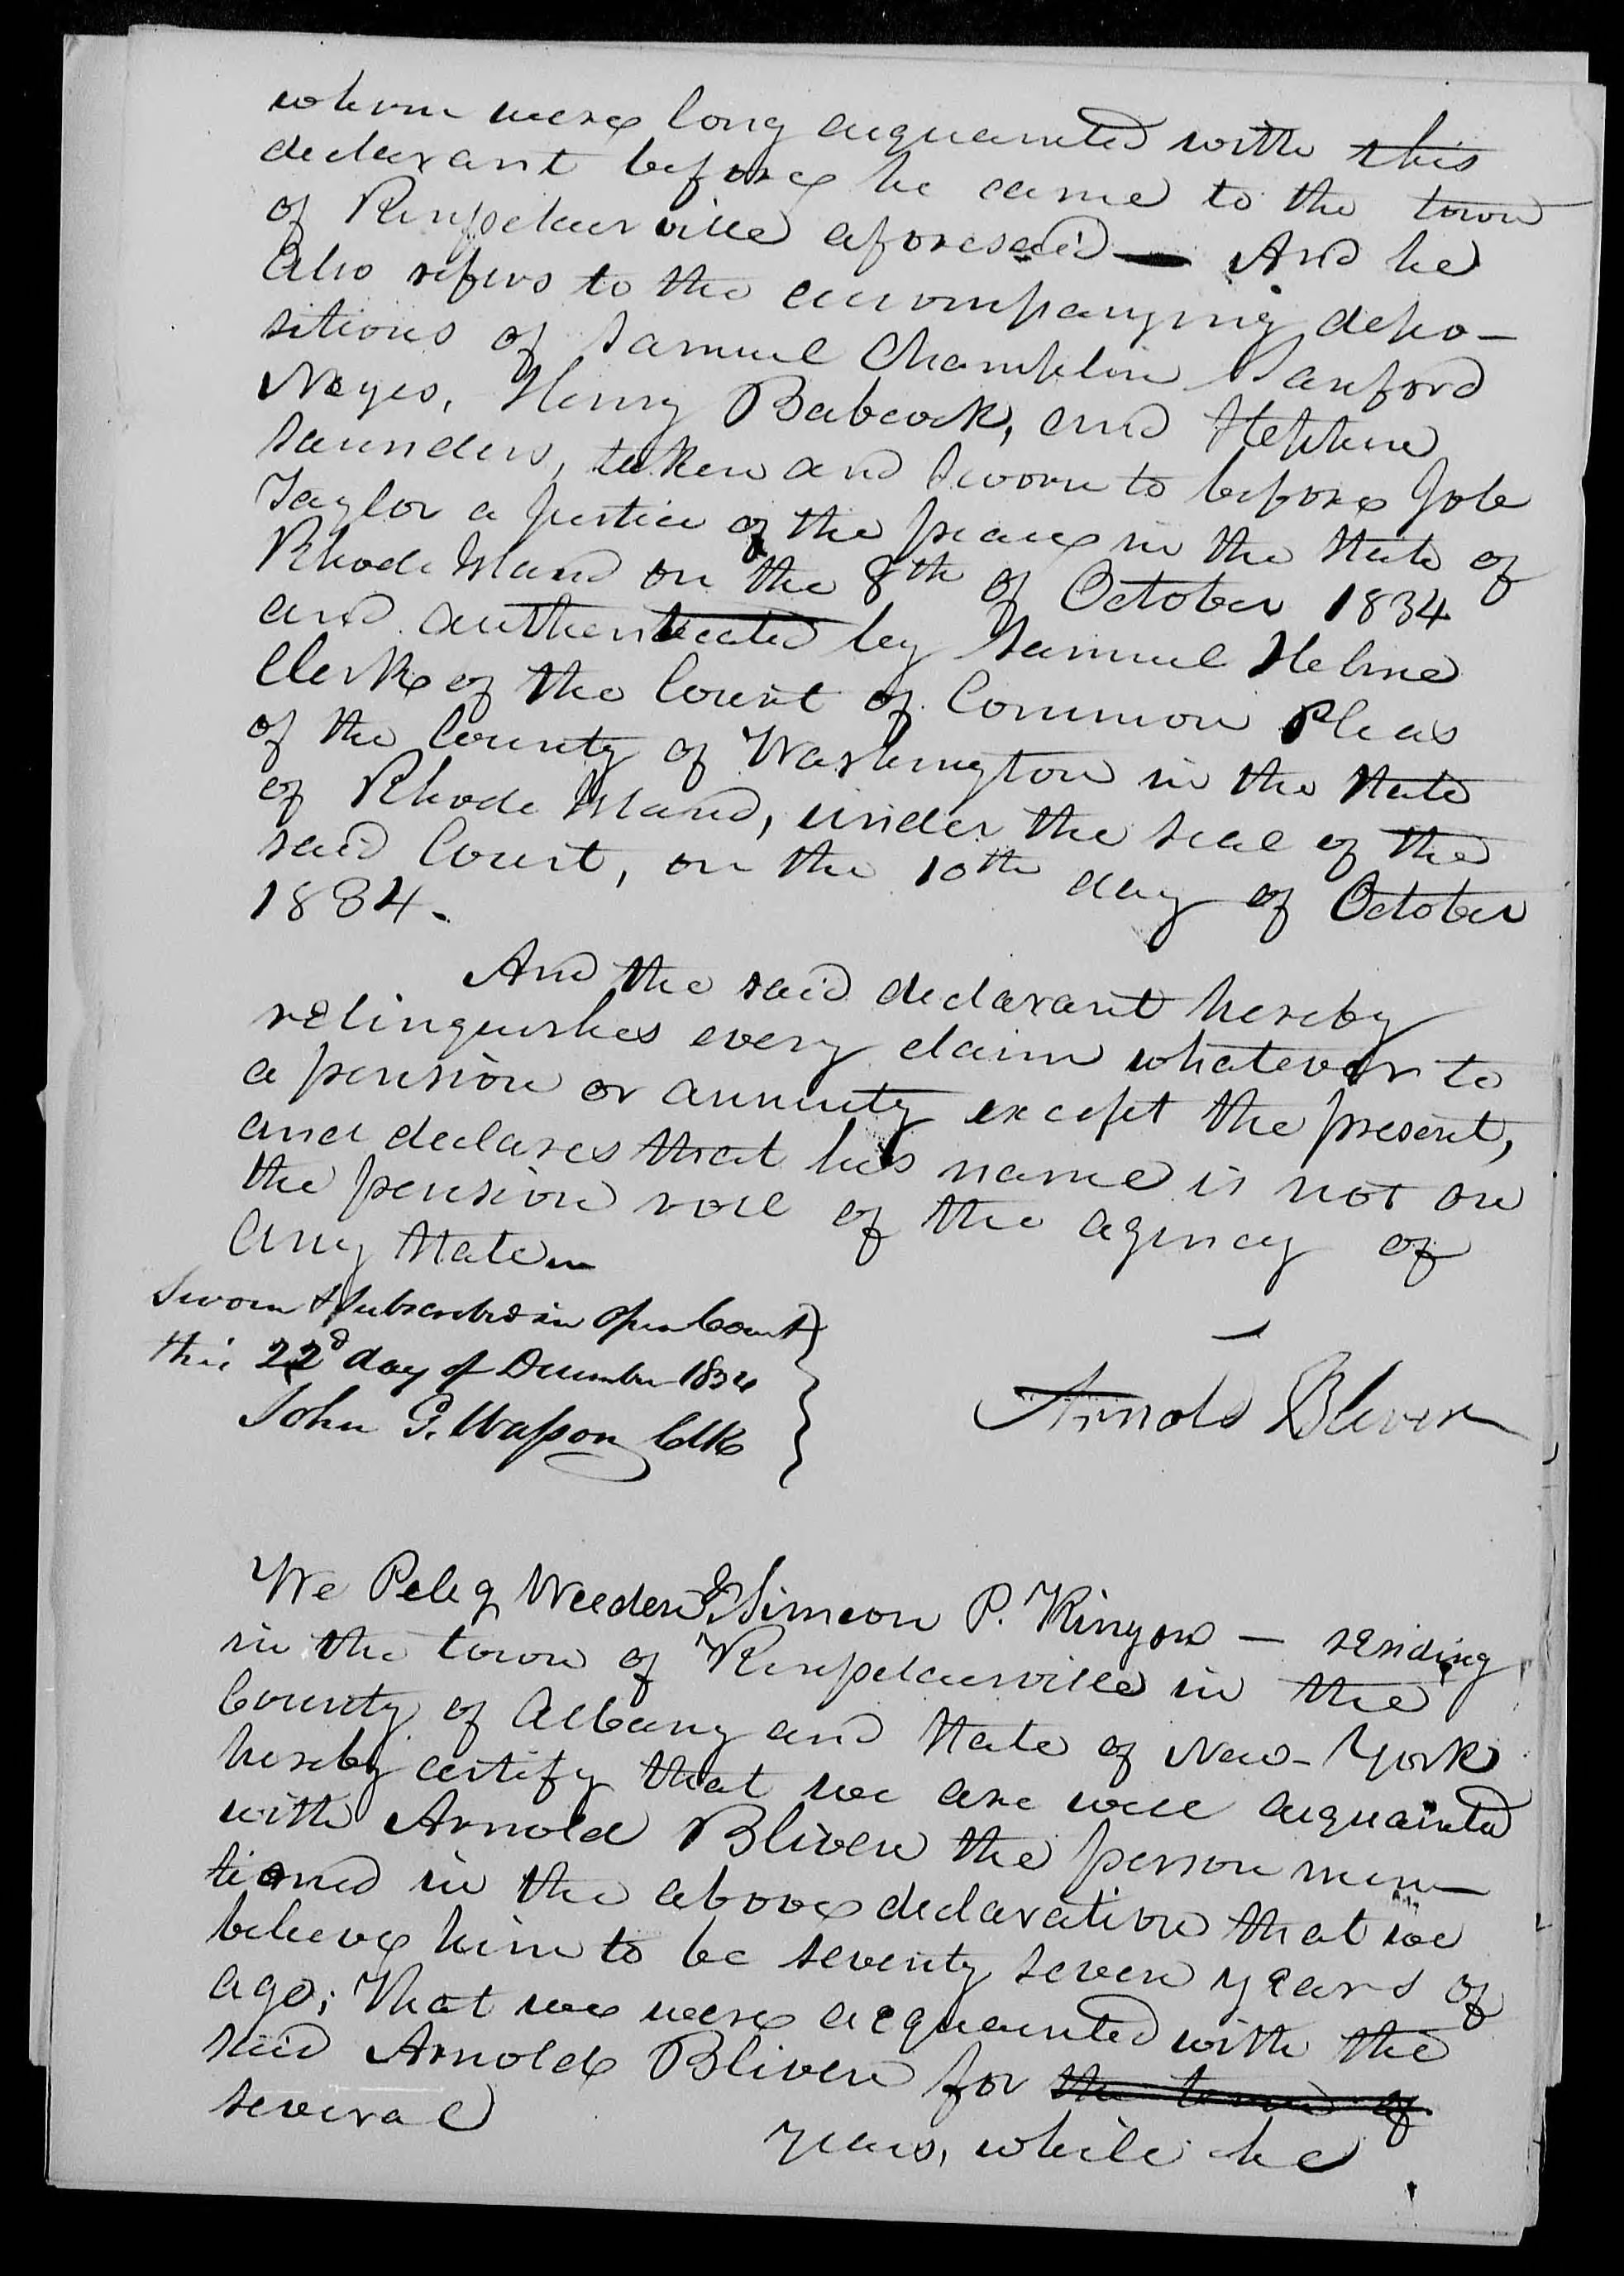 whom were long acquainted with this
declarant before he came to the town
of Rensselaerville aforesaid — And he
also refers to the accompanying depo-
sitions of Samuel Champlin Sanford
Noyes, Henry Babcock, and Stephen
Saunders, taken and sworn to before Job
Taylor a justice of the peace in the State of
Rhode Island on the 8th of October 1834
and authenticated by Samuel Helme
Clerk of the Court of Common Pleas
of the County of Washington in the State
of Rhode Island, under the seal of the
said Court, on the 10th day of October
1834.
And the said declarant hereby
relinquishes every claim whatever to
a pension or annuity except the present,
and declares that his name is not on
the pension roll of the agency of
any State
Sworn & Subscribed in Open Court
this 22d day of December 1834
John G. Wasson Clk
Arnold Bliven
We Peleg Weeden & Simeon P. Kinyon — residing
in the town of Rensselaerville in the
County of Albany and State of New-York
hereby certify that we are well acquainted
with Arnold Bliven the person men-
tioned in the above declaration that we
believe him to be seventy seven years of
age; That we were acquainted with the
said Arnold Bliven for the term of
several years, while he